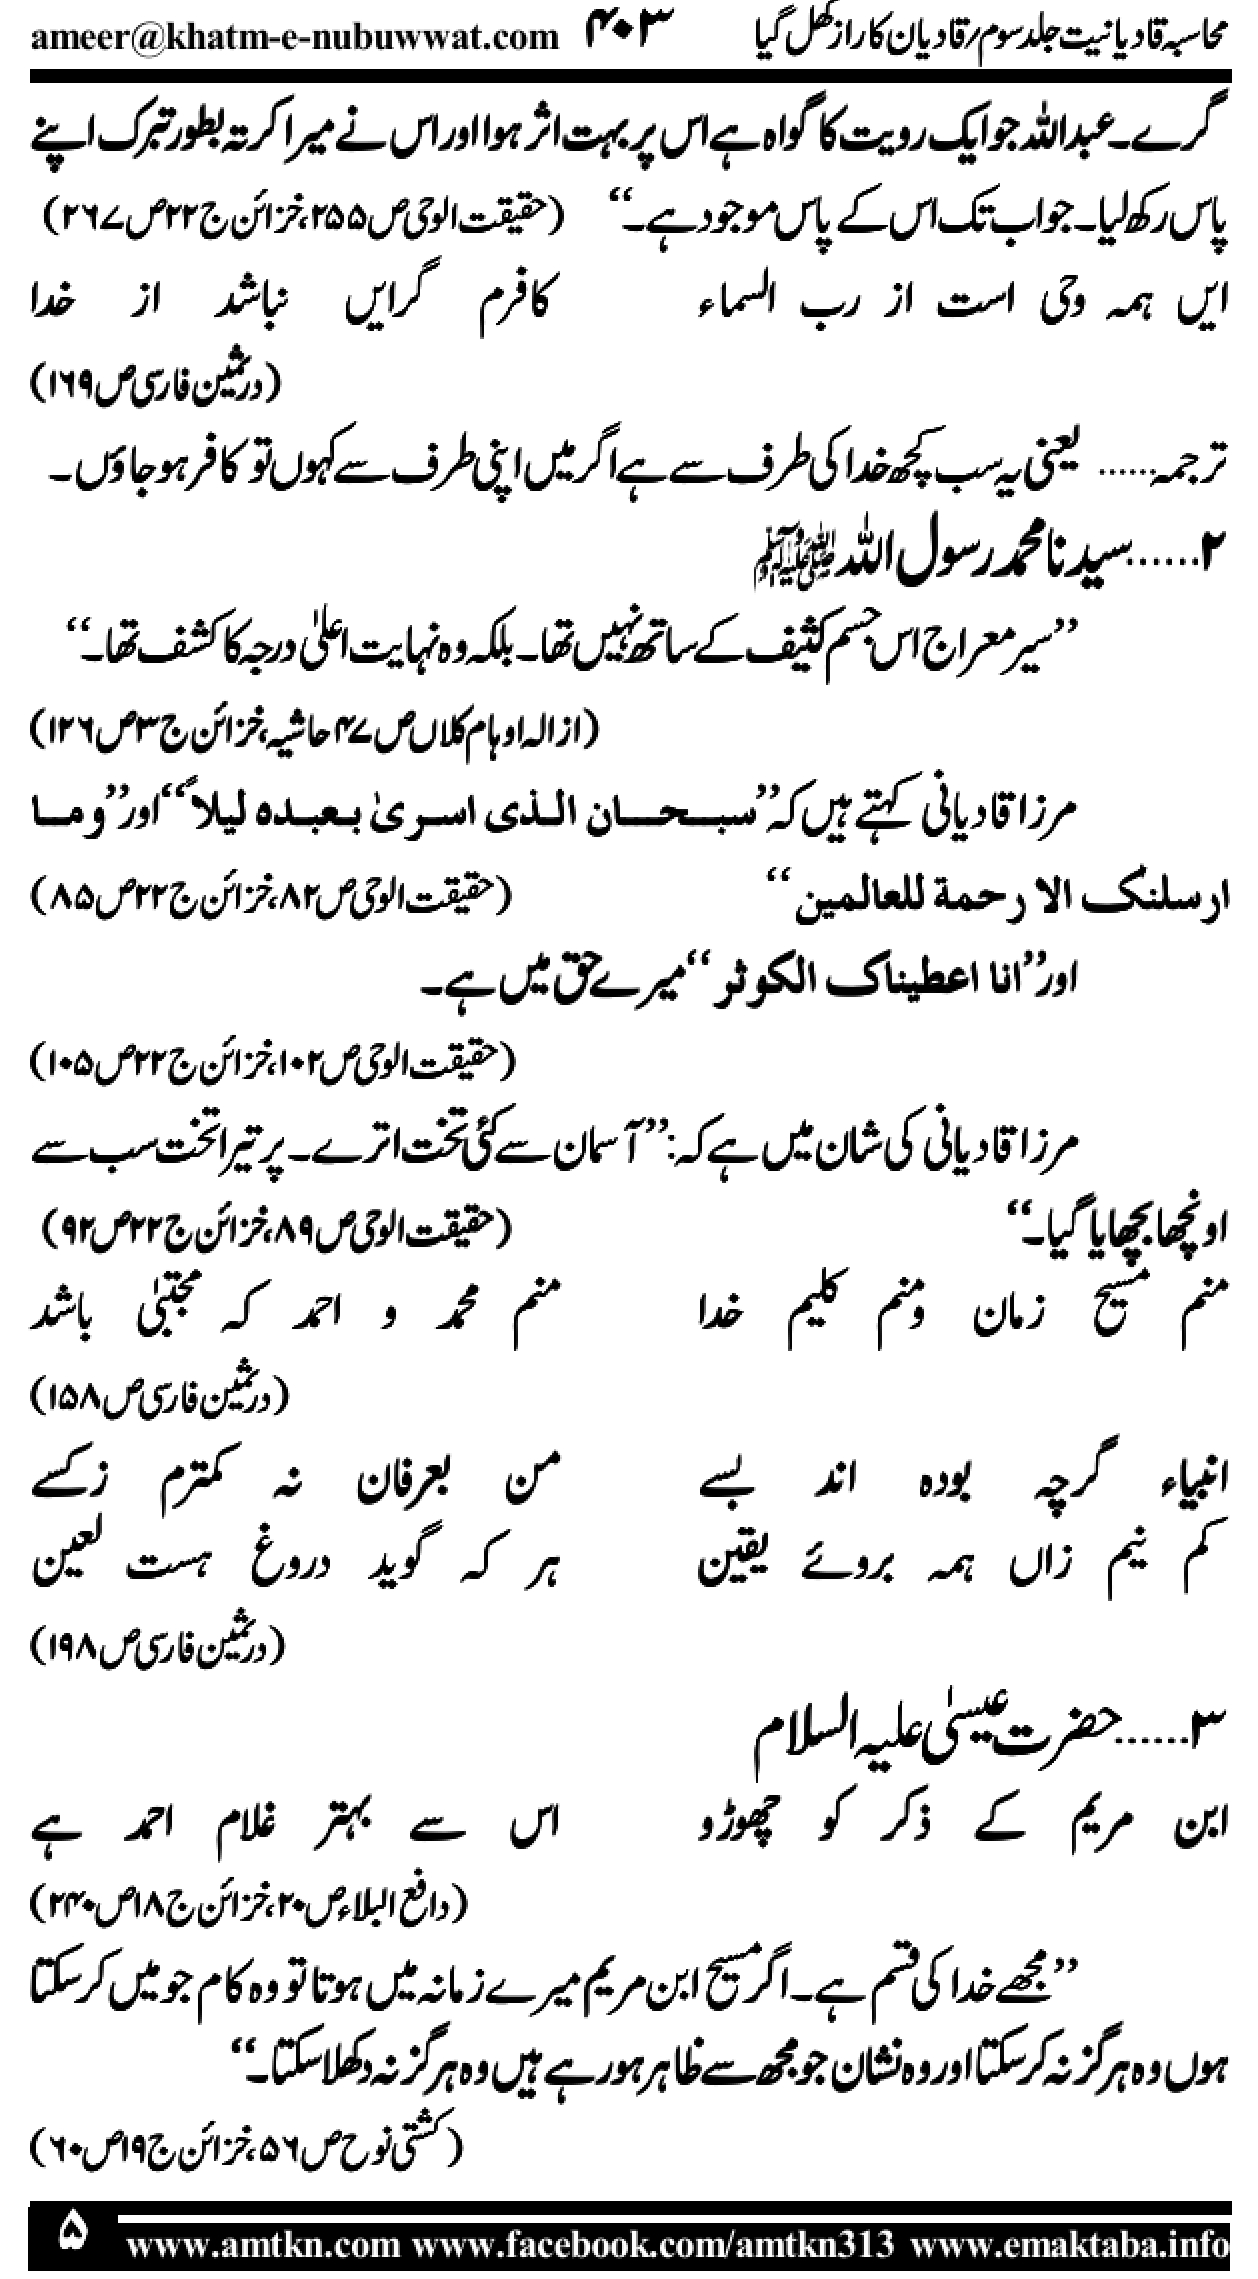 محاسبہ قادیانیت جلد سوم / قادیان کا راز کھل گیا ۴۰۳ ameer@khatm-e-nubuwwat.com
گرے۔ عبداللہ جو ایک رویت کا گواہ ہے اس پر بہت اثر ہوا اور اس نے میرا کرتہ بطور تبرک اپنے
پاس رکھ لیا۔ جو اب تک اس کے پاس موجود ہے۔‘‘ (حقیقت الوحی ص۲۵۵، خزائن ج۲۲ ص۲۶۷)
ایں ہمہ وحی است از رب السماء کافرم گرایں نباشد از خدا
(درثمین فارسی ص۱۶۹)
ترجمہ...... یعنی یہ سب کچھ خدا کی طرف سے ہے اگر میں اپنی طرف سے کہوں تو کافر ہو جاؤں۔
۲......سیدنا محمد رسول اللہ ﷺ
’’سیر معراج اس جسم کثیف کے ساتھ نہیں تھا۔ بلکہ وہ نہایت اعلیٰ درجہ کا کشف تھا۔‘‘
(ازالہ اوہام کلاں ص۴۷ حاشیہ، خزائن ج۳ ص۱۲۶)
مرزا قادیانی کہتے ہیں کہ ’’سبحان الذی اسریٰ بعبدہ لیلاً‘‘ اور ’’وما
ارسلنک الا رحمة للعالمین‘‘ (حقیقت الوحی ص۸۲، خزائن ج۲۲ ص۸۵)
اور ’’انا اعطیناک الکوثر‘‘ میرے حق میں ہے۔
(حقیقت الوحی ص۱۰۲، خزائن ج۲۲ ص۱۰۵)
مرزا قادیانی کی شان میں ہے کہ: ’’آسمان سے کئی تخت اترے۔ پر تیرا تخت سب سے
اونچا بچھایا گیا۔‘‘ (حقیقت الوحی ص۸۹، خزائن ج۲۲ ص۹۲)
منم مسیح زمان ومنم کلیم خدا منم محمد و احمد کہ مجتبیٰ باشد
(درثمین فارسی ص۱۵۸)
انبیاء گرچہ بودہ اند بسے من بعرفان نہ کمترم زکسے
کم نیم زاں ہمہ بروئے یقین ہر کہ گوید دروغ ہست لعین
(درثمین فارسی ص۱۹۸)
۳......حضرت عیسیٰ علیہ السلام
ابن مریم کے ذکر کو چھوڑو اس سے بہتر غلام احمد ہے
(دافع البلاء ص۲۰، خزائن ج۱۸ ص۲۴۰)
’’مجھے خدا کی قسم ہے۔ اگر مسیح ابن مریم میرے زمانہ میں ہوتا تو وہ کام جو میں کر سکتا
ہوں وہ ہرگز نہ کر سکتا اور وہ نشان جو مجھ سے ظاہر ہو رہے ہیں وہ ہرگز نہ دکھلا سکتا۔‘‘
(کشتی نوح ص۵۶، خزائن ج۱۹ ص۶۰)
۵ www.amtkn.com www.facebook.com/amtkn313 www.emaktaba.info